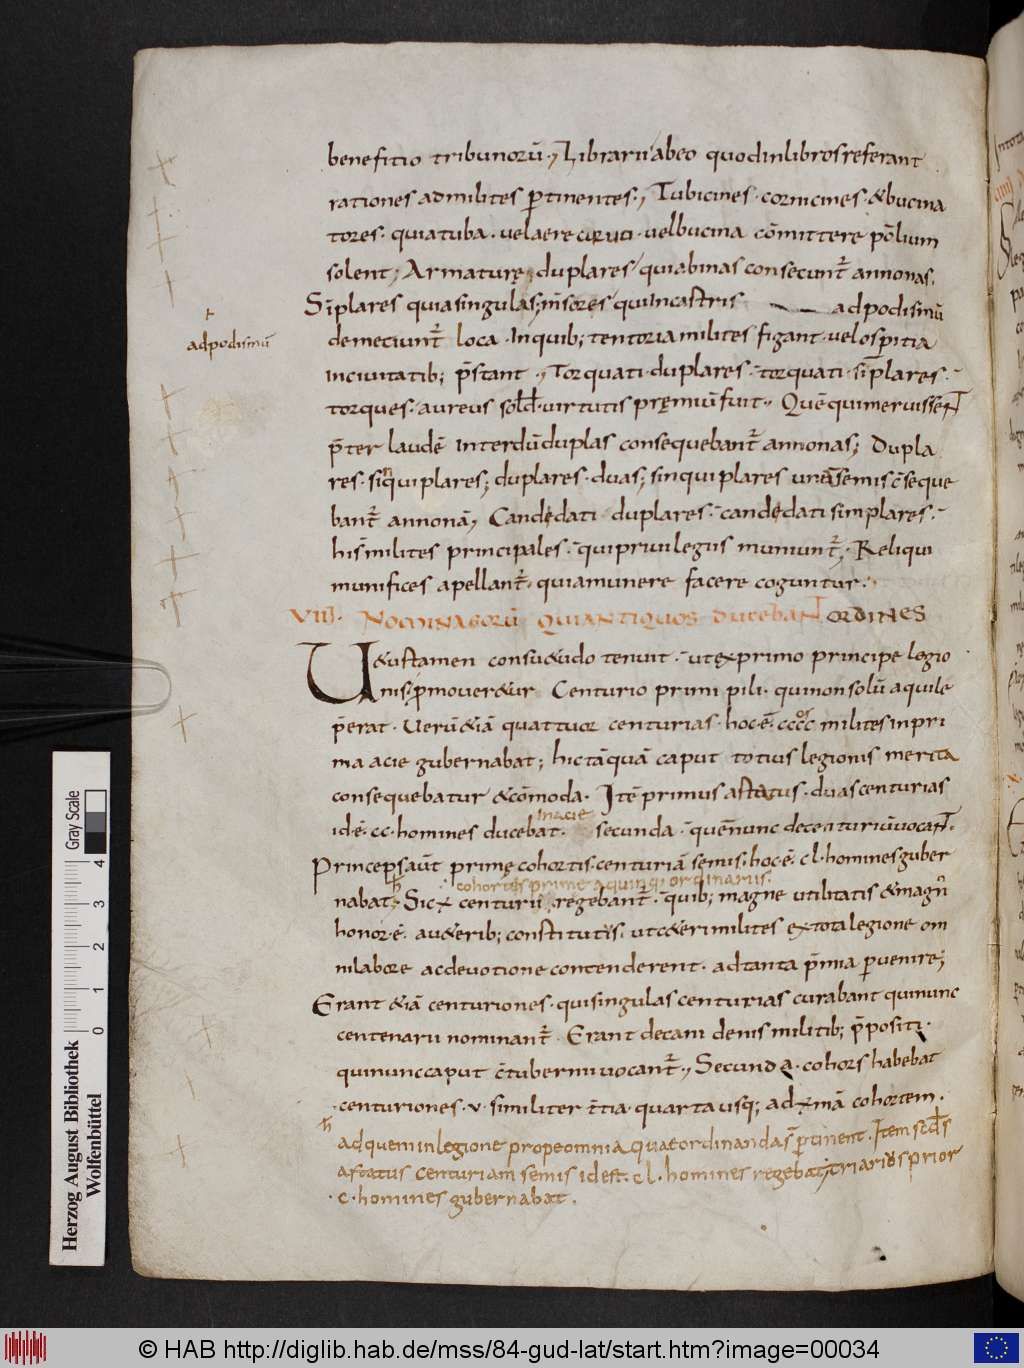 benefitio tribunorū., Librarii abeo quodinlibrosreferant
rationes admilites ꝑtinentes., Tubicines · cornicines · &bucina
tores · quiatuba · velaere · velbucina cōmittere pōlium
solent; Armaturę duplares quiabinas consecunt̄ annonas.
Sīplares quiasingulas; m̄sores quiincastris adpodismū
adpodismū
demeciunt̄ loca · Inquib; tentoria milites figant · velospitia
inciuitatib; p̄stant ., Torquati · duplares · torquati · simplares ·
torques · aureus solđ · virtutis pręmiū fuit ., Quē quimeruissent
p̄ter laudē interdū duplas consequebant̄ annonas; Dupla
res · duplares · duas; sinquiplares unā semis c̄seque
bant̄ annonā, Candedati duplares · candedati simplares ·
his̄milites principales · quipriuilegiis muniunt̄ · Reliqui
munifices apellant̄ · quiamunere facere coguntur ·
VIII. NOMINAEORŪ QUIANTIQUOS DUCEBANT ORDINES
U&ustamen consu&udo tenuit · utexprimo principe legio
nis ꝓmouer&ur Centurio primi pili · quinonsolū aquile
p̄erat · Uerū&iā quattuor centurias · hoc · ē · cccc milites inpri
ma acie gubernabat; hictāquā caput totius legionis merita
consequebatur &cōmoda · Itē primus astatus · duascenturias
id · ē · cc · homines ducebat · inacie secunda · quēnunc decenturiūuocant ·
Princeps aūt primę cohortis · centuriā semis · hoc · ē · cl · homines guber
nabat · Sic x centurii cohortis prime aquinqi ordinariis · regebant̄ · quib; magne utilitatis &magn̄
honor · ē · au&erib; constitutis · utc&erimilites extotalegione om
nilabore acdevotione contenderent · adtanta p̄mia ꝑuenire;
Erant &iā centuriones · quisingulas centurias curabant quinunc
centenarii nominant̄ · Erant decani denis militib; p̄positi ·
quinunccaput c̄tubernii uocant̄ ., Secunda · cohors habebat
centuriones · v · similiter t̄tia · quarta usq; adxmā cohortem ·
adqueminlegione propeomnia quaeordinandas ꝑtinent · Item scđs
astatus centuriam semis idest · cl · homines regebat; triarios prior
· c · homines gubernabat ·
Herzog August Bibliothek
Wolfenbüttel
Gray Scale
0 1 2 3 4
© HAB http://diglib.hab.de/mss/84-gud-lat/start.htm?image=00034